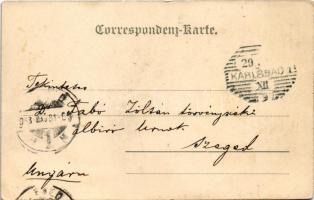 Correspondenz-Karte.
29
KARLSBAD 1
XII
Tekintetes
Dr. Szabó Zoltán törvényszéki
albiró urnak
Szeged
Ungarn